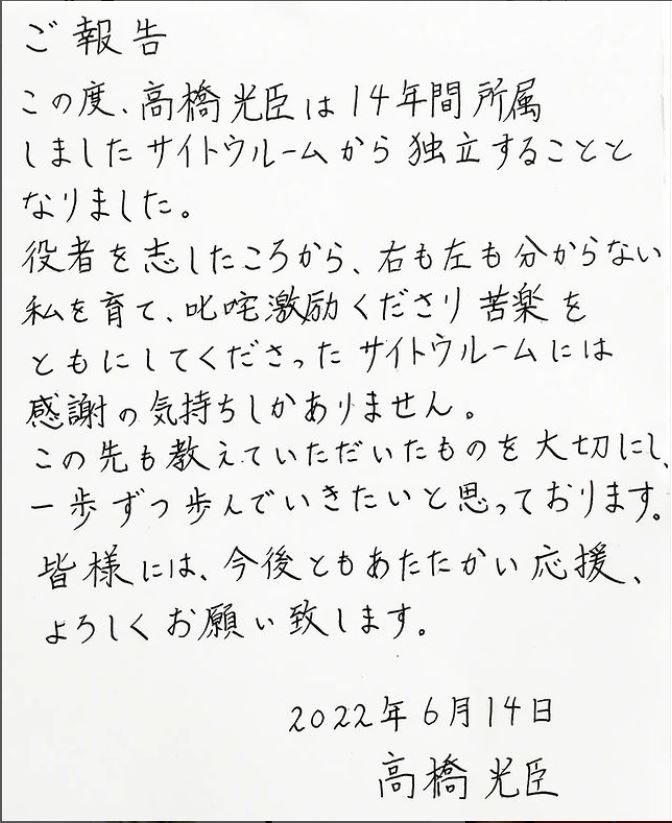 ご報告
この度、高橋光臣は14年間所属
しましたサイトウルームから独立することと
なりました。
役者を志したころから、右も左も分からない
私を育て、叱咤激励くださり苦楽を
ともにしてくださったサイトウルームには
感謝の気持ちしかありません。
この先も教えていただいたものを大切にし、
一歩ずつ歩んでいきたいと思っております。
皆様には、今後ともあたたかい応援、
よろしくお願い致します。
2022年6月14日
高橋光臣